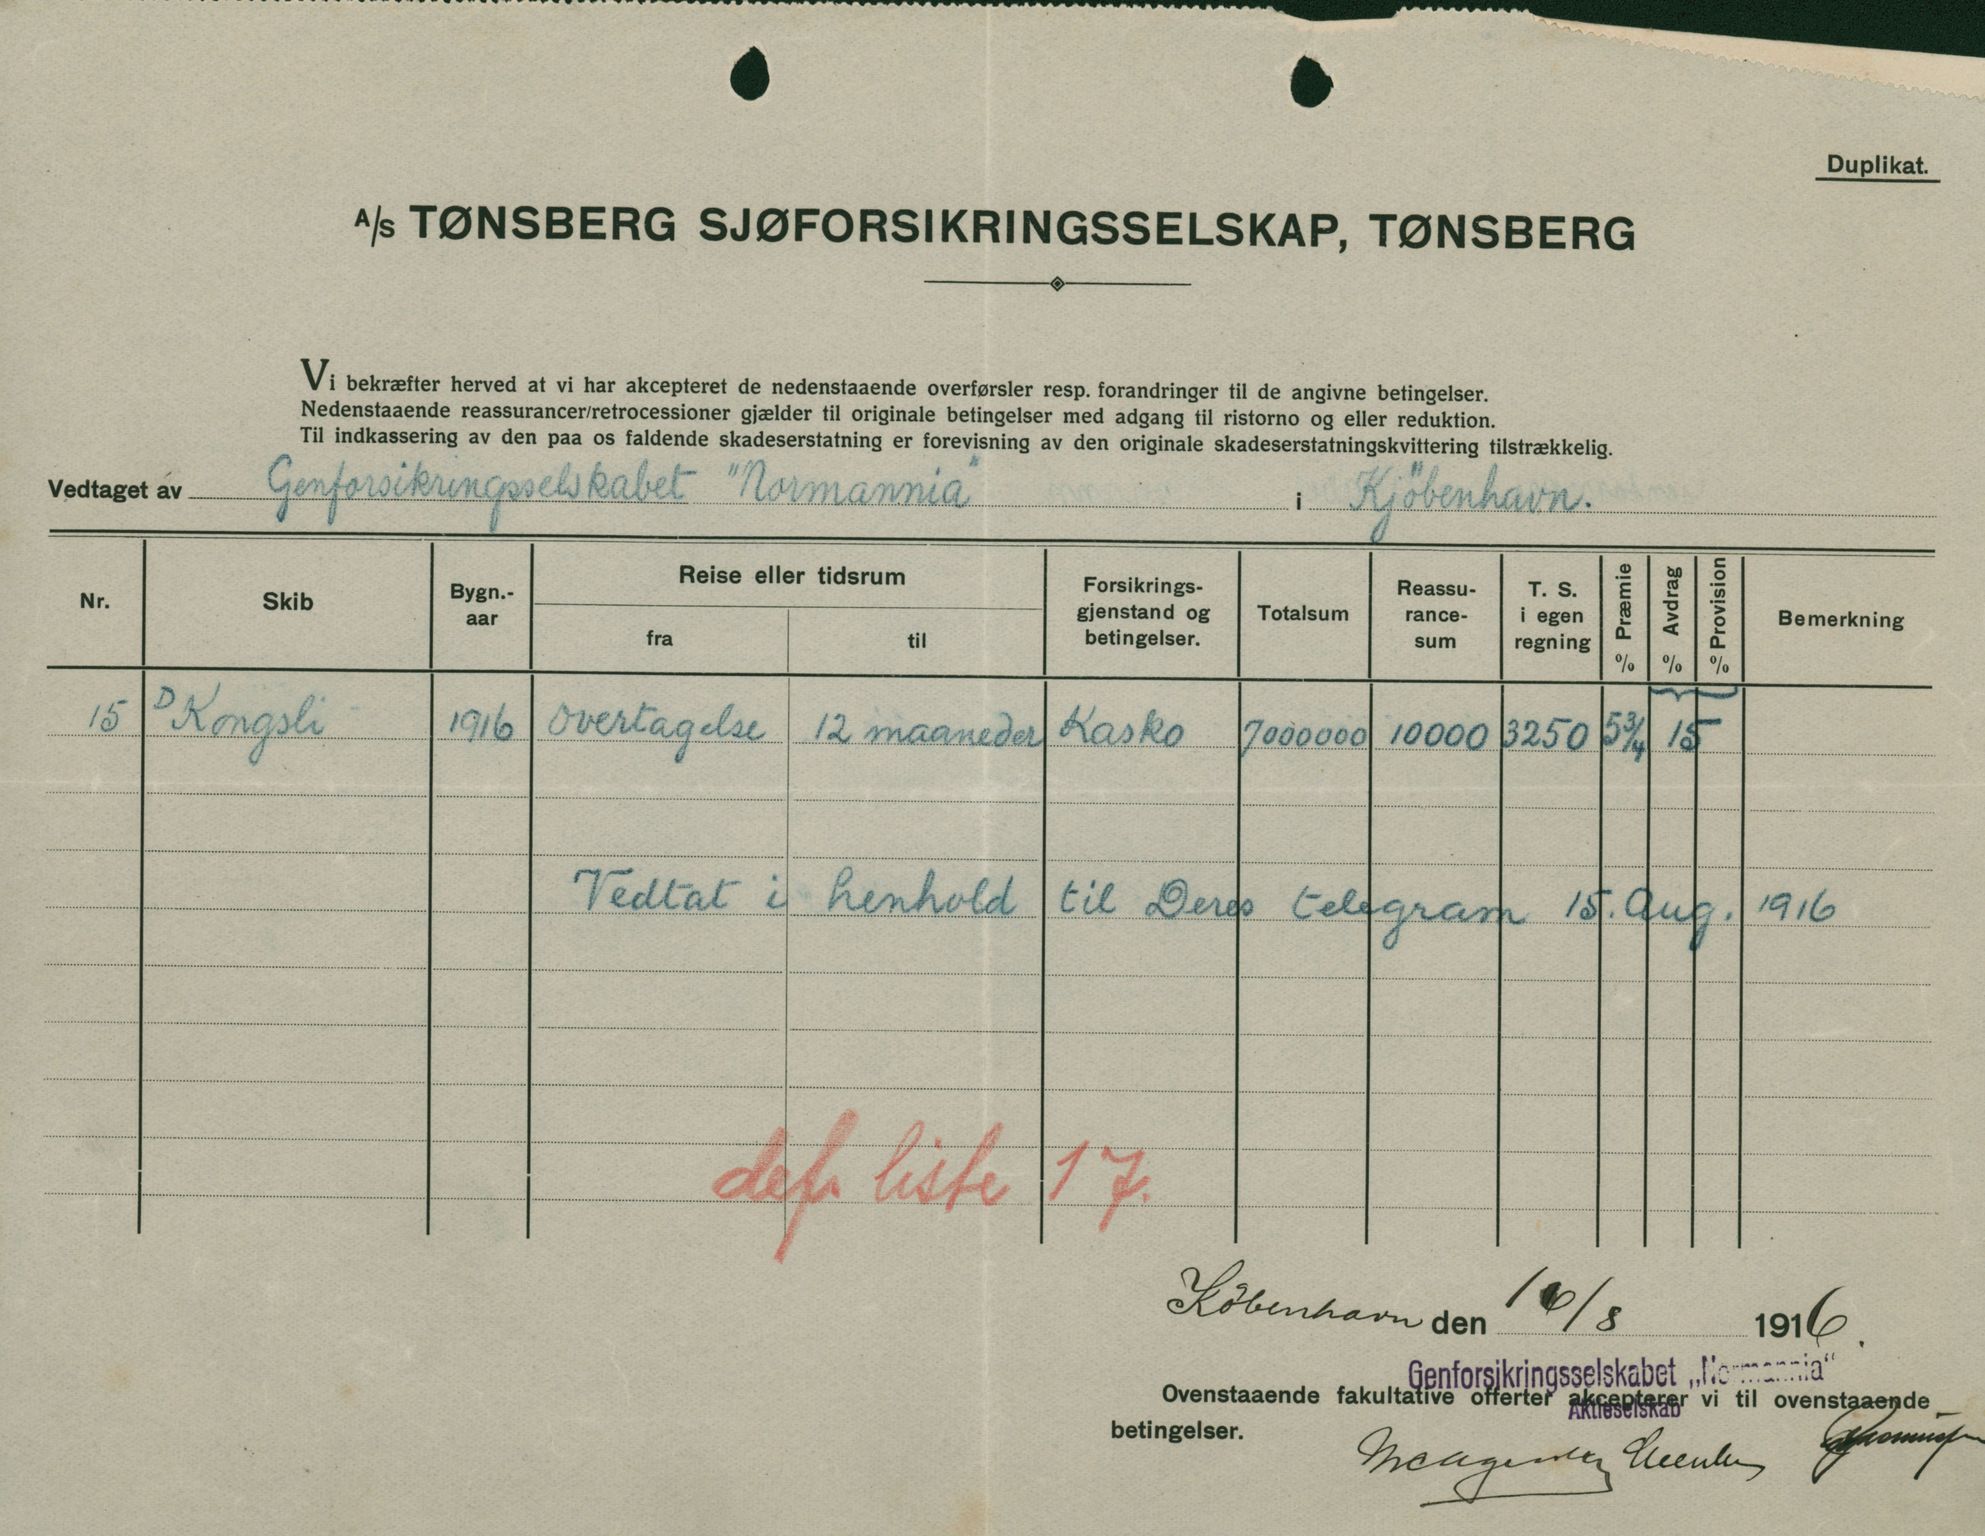 Duplikat.
A/S TØNSBERG SJØFORSIKRINGSSELSKAP, TØNSBERG
Vi bekræfter herved at vi har akcepteret de nedenstaaende overførsler resp. forandringer til de angivne betingelser.
Nedenstaaende reassurancer/retrocessioner gjælder til originale betingelser med adgang til ristorno og eller reduktion.
Til indkassering av den paa os faldende skadeserstatning er forevisning av den originale skadeserstatningskvittering tilstrækkelig.
Vedtaget av Genforsikringsselskabet "Normannia" i Kjöbenhavn.
Nr. Skib Bygn.-aar Reise eller tidsrum fra til Forsikrings-gjenstand og betingelser. Totalsum Reassu-rance-sum T. S. i egen regning Præmie % Avdrag % Provision % Bemerkning
15 D Kongsli 1916 overtagelse 12 maaneder Kasko 7000000 10000 3250 5 3/4 15
Vedtat i henhold til Deres telegram 15. Aug. 1916
def. liste 17.
København den 16/8 1916.
Genforsikringsselskabet „Normannia"
Ovenstaaende fakultative offerter akcepterer vi til ovenstaaende
Aktieselskab
betingelser.